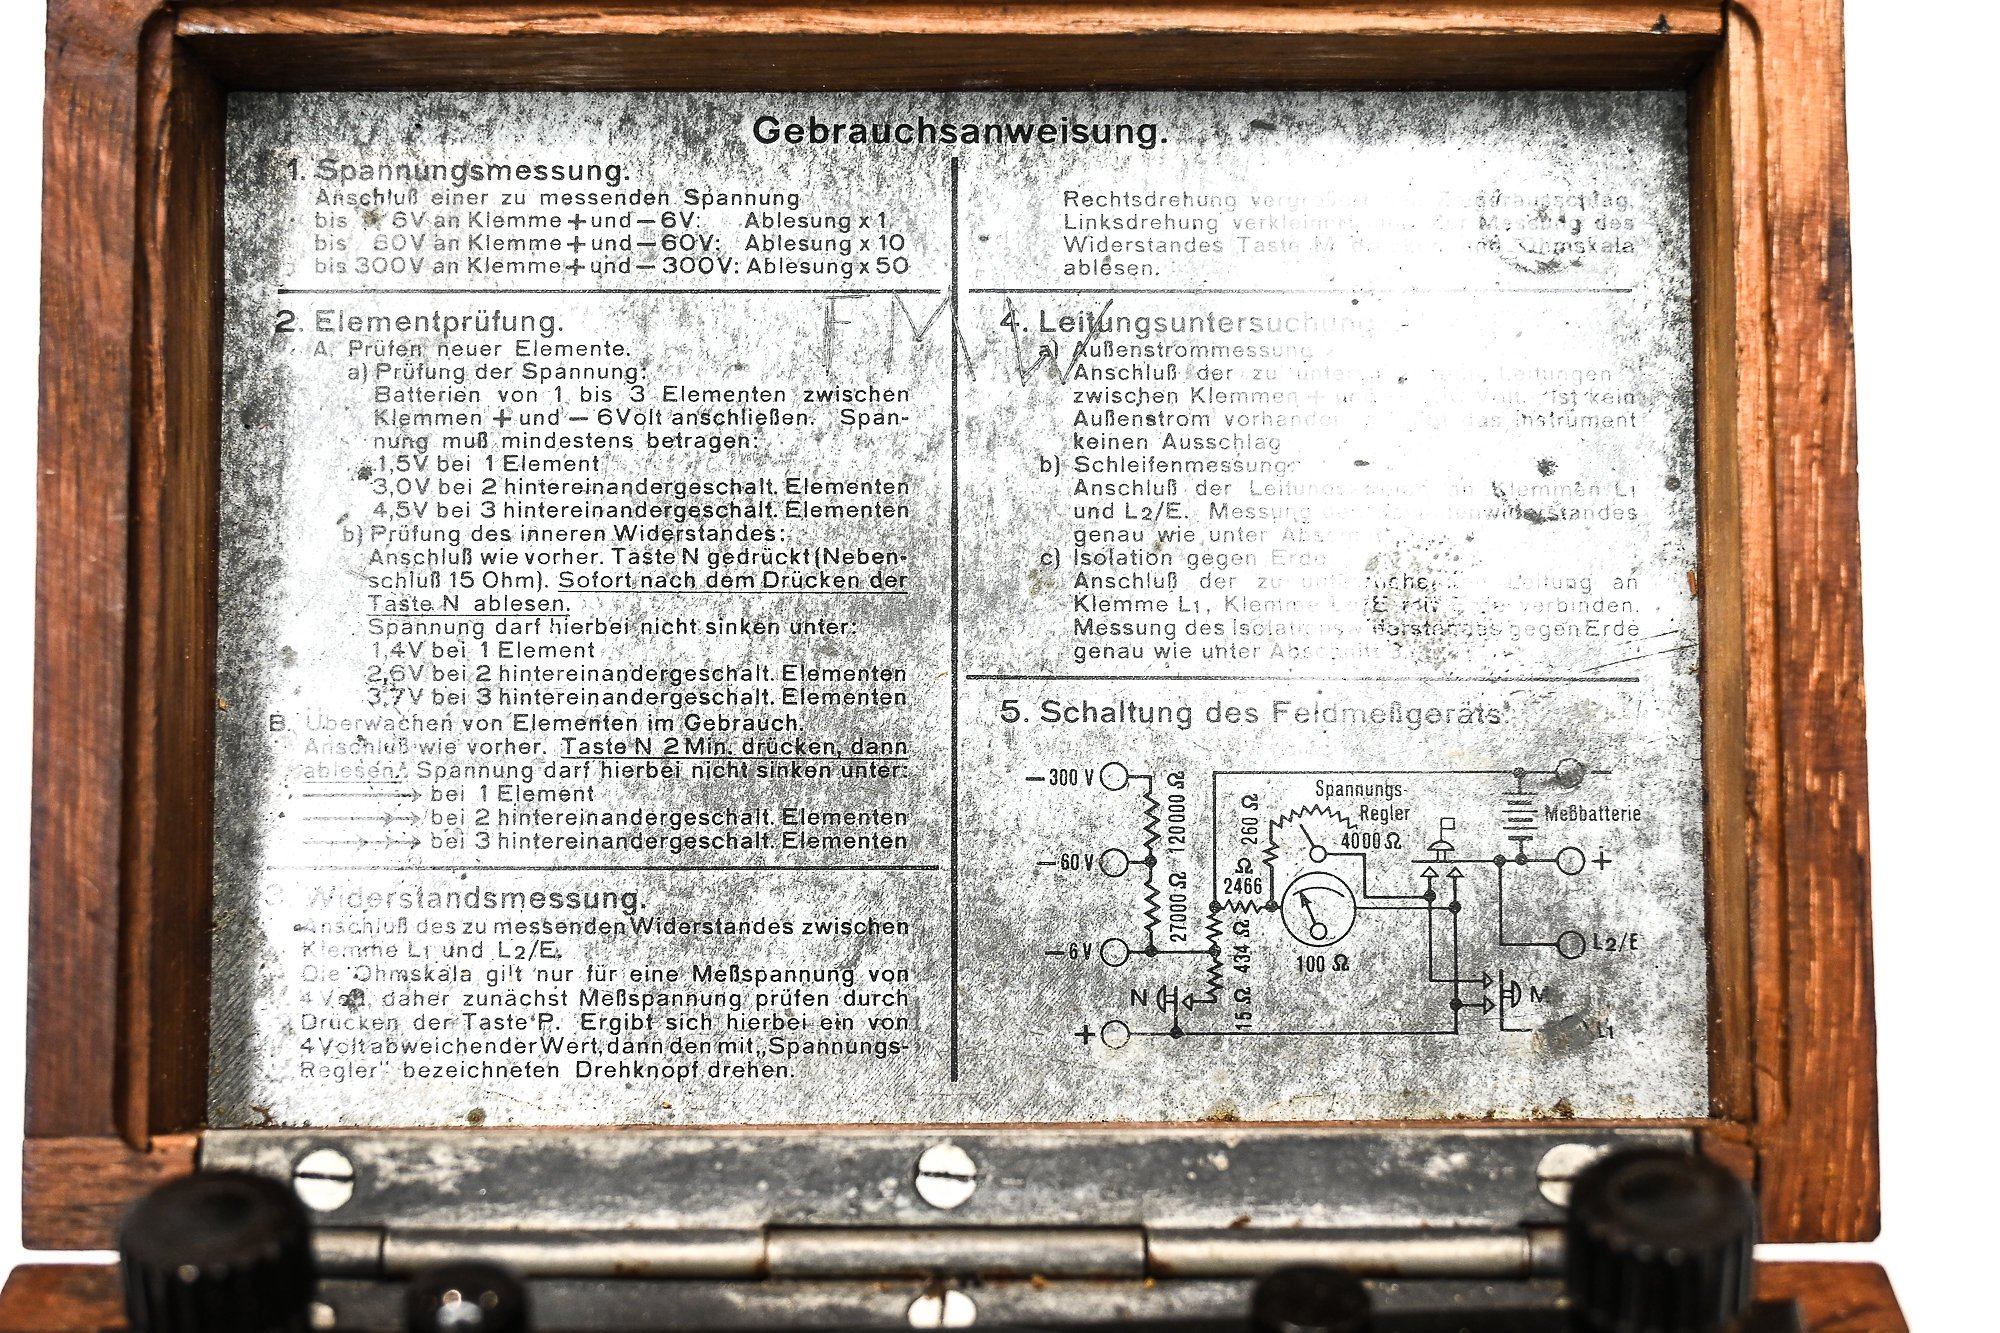 Gebrauchsanweisung.
1. Spannungsmessung.
Anschluß einer zu messenden Spannung
bis 6V an Klemme + und − 6V: Ablesung x 1
bis 60V an Klemme + und − 60V: Ablesung x 10
bis 300V an Klemme + und − 300V: Ablesung x 50
2. Elementprüfung.
A. Prüfen neuer Elemente.
a) Prüfung der Spannung:
Batterien von 1 bis 3 Elementen zwischen
Klemmen + und − 6 Volt anschließen. Span-
nung muß mindestens betragen:
1,5V bei 1 Element
3,0V bei 2 hintereinandergeschalt. Elementen
4,5V bei 3 hintereinandergeschalt. Elementen
b) Prüfung des inneren Widerstandes:
Anschluß wie vorher. Taste N gedrückt (Neben-
schluß 15 Ohm). Sofort nach dem Drücken der
Taste N ablesen.
Spannung darf hierbei nicht sinken unter:
1,4V bei 1 Element
2,6V bei 2 hintereinandergeschalt. Elementen
3,7V bei 3 hintereinandergeschalt. Elementen
B. Überwachen von Elementen im Gebrauch.
Anschluß wie vorher. Taste N 2 Min. drücken, dann
ablesen. Spannung darf hierbei nicht sinken unter:
bei 1 Element
bei 2 hintereinandergeschalt. Elementen
bei 3 hintereinandergeschalt. Elementen
3. Widerstandsmessung.
Anschluß des zu messenden Widerstandes zwischen
Klemme L1 und L2/E.
Die Ohmskala gilt nur für eine Meßspannung von
4 Volt, daher zunächst Meßspannung prüfen durch
Drücken der Taste P. Ergibt sich hierbei ein von
4 Volt abweichender Wert, dann den mit „Spannungs-
Regler" bezeichneten Drehknopf drehen.
Rechtsdrehung vergrößert Zeigerausschlag,
Linksdrehung verkleinert Messung des
Widerstandes Taste M und Ohmskala
ablesen.
FMW
4. Leitungsuntersuchung.
a) Außenstrommessung
Anschluß der zu Leitungen
zwischen Klemmen + Volt. Ist kein
Außenstrom vorhanden das Instrument
keinen Ausschlag
b) Schleifenmessung
Anschluß der an Klemmen L1
und L2/E. Messung des
genau wie unter
c) Isolation gegen Erde
Anschluß der zu untersuchenden Leitung an
Klemme L1, Klemme L2/E mit Erde verbinden.
Messung des Isolationswiderstandes gegen Erde
genau wie unter Abschnitt 3.
5. Schaltung des Feldmeßgeräts.
−300 V
120000 Ω
260 Ω
Spannungs-
Regler
4000 Ω
Meßbatterie
−60 V
27000 Ω
2466 Ω
+
−6 V
434 Ω
100 Ω
L2/E
N
15 Ω
M
+
L1